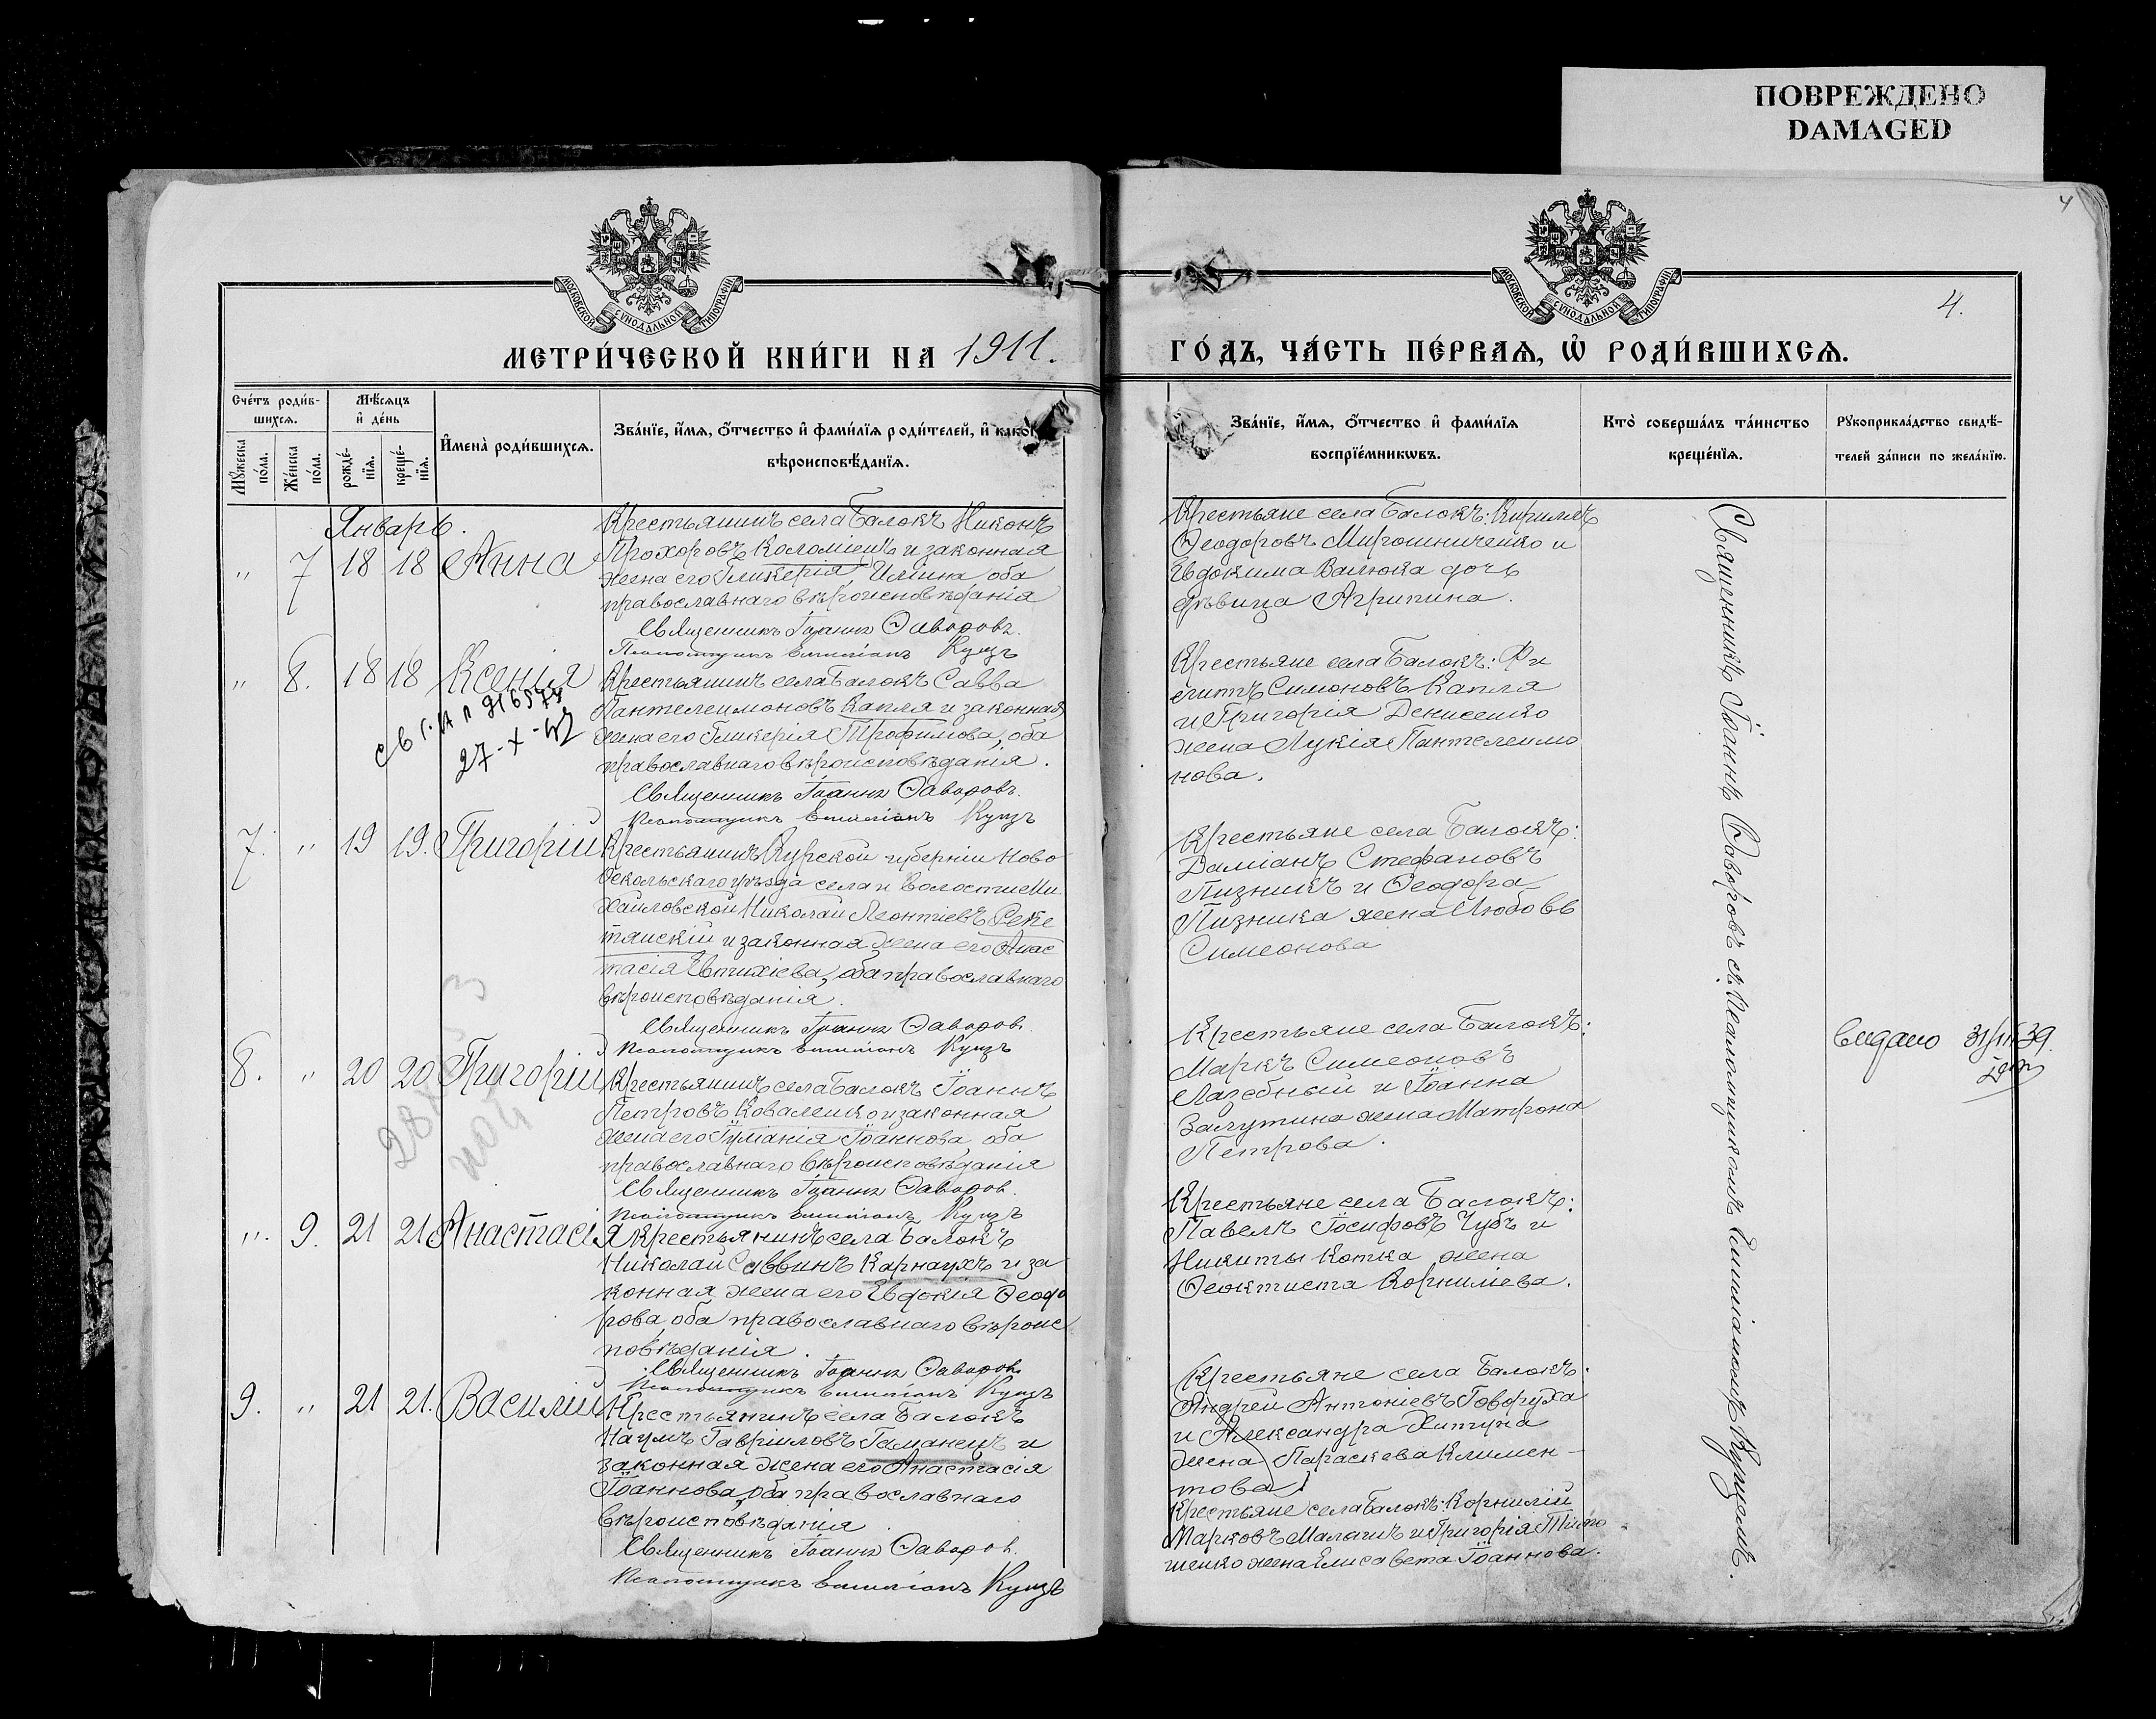 ПОВРЕЖДЕНО
DAMAGED
4
4.
МОСКОВСКОЙ СѴНОДАЛЬНОЙ ТИПОГРАФІИ
МОСКОВСКОЙ СѴНОДАЛЬНОЙ ТИПОГРАФІИ
МЕТРИ́ЧЕСКОЙ КНИ́ГИ НА 1911.
ГО́ДЪ, ЧА́СТЬ ПЕ́РВАѦ, Ѽ РОДИ́ВШИХСѦ.
Сче́тъ роди́в-
шихсѧ.
Мѣ́сѧцъ
и҆ де́нь
Мꙋ́жеска
по́ла.
Же́нска
по́ла.
рожде́-
нїѧ.
креще́-
нїѧ.
И҆мена̀ роди́вшихсѧ.
Зва́нїе, и҆́мѧ, ѻ҆́тчество и҆ фами́лїѧ роди́телей, и҆ како́гѡ
вѣроисповѣ́данїѧ.
Зва́нїе, и҆́мѧ, ѻ҆́тчество и҆ фами́лїѧ
воспрїе́мникѡвъ.
Кто̀ соверша́лъ та́инство
креще́нїѧ.
Рꙋкоприкла́дство свидѣ́-
телей за́писи по жела́нїю.
Январь.
„ 7 18 18 Анна
Крестьянинъ села Балокъ Никонъ
Прохоровъ Коломіецъ и законная
жена его Гликерія Иліина, оба
православнаго вѣроисповѣданія
Священникъ Іоаннъ Ѳаворовъ.
Псаломщикъ Емиліанъ Кущъ
Крестьяне села Балокъ: Кириллъ
Ѳеодоровъ Мирошниченко и
Евдокима Валюка дочь
дѣвица Агрипина.
„ 8. 18 18 Ксенія
27-X-
Крестьянинъ села Балокъ Савва
Пантелеимоновъ Капля и законная
жена его Гликерія Трофимова, оба
православнаго вѣроисповѣданія.
Священникъ Іоаннъ Ѳаворовъ.
Псаломщикъ Емиліанъ Кущъ
Крестьяне села Балокъ: Фи
Симоновъ Капля
и Григорія Денисенко
жена Лукія Пантелеимо
нова.
7. „ 19 19. Григорій
Крестьянинъ Курской губерніи Ново
Оскольскаго уѣзда села и волости Ми
хайловской Николай Леонтіевъ Реке
тянскій и законная жена его Анас
тасія Евтихіева, оба православнаго
вѣроисповѣданія.
Священникъ Іоаннъ Ѳаворов.
Псаломщикъ Емиліанъ Кущъ
Крестьяне села Балокъ:
Даміанъ Стефановъ
Пизникъ и Ѳеодора
Пизника жена Любовь
Симеонова
8. „ 20 20 Григорій
Крестьянинъ села Балокъ Іоаннъ
Петровъ Коваленко и законная
жена его Іуліанія Іоаннова, оба
православнаго вѣроисповѣданія
Священникъ Іоаннъ Ѳаворов.
Псаломщикъ Емиліанъ Кущъ
Крестьяне села Балокъ:
Маркъ Симеоновъ
Лазебный и Іоанна
Залутина жена Матрона
Петрова.
Видано 31/III 39.
„. 9. 21 21 Анастасія
Крестьянинъ села Балокъ
Николай Саввинъ Карнаухъ и за
конная жена его Евдокія Ѳеодо
рова, оба православнаго вѣроис
повѣданія.
Священникъ Іоаннъ Ѳаворов.
Псаломщикъ Емиліанъ Кущъ
Крестьяне села Балокъ:
Павелъ Іосифовъ Чубъ и
Никиты Котка жена
Ѳеоктиста Корниліева.
9. „ 21 21. Василій
Крестьянинъ села Балокъ
Наумъ Гавріиловъ Гаманецъ и
законная жена его Анастасія
Іоаннова, оба православнаго
вѣроисповѣданія
Священникъ Іоаннъ Ѳаворов.
Псаломщикъ Емиліанъ Кущъ
Крестьяне села Балокъ:
Андрей Антоніевъ Говоруха
и Александра Хитуна
жена Параскева Климен-
това
Крестьяне села Балокъ: Корнилій
Марковъ Малачъ и Григорія Тимо
шенко жена Елисавета Іоаннова.
Священникъ Іоаннъ Ѳаворовъ съ Псаломщикомъ Емиліаномъ Кущемъ.